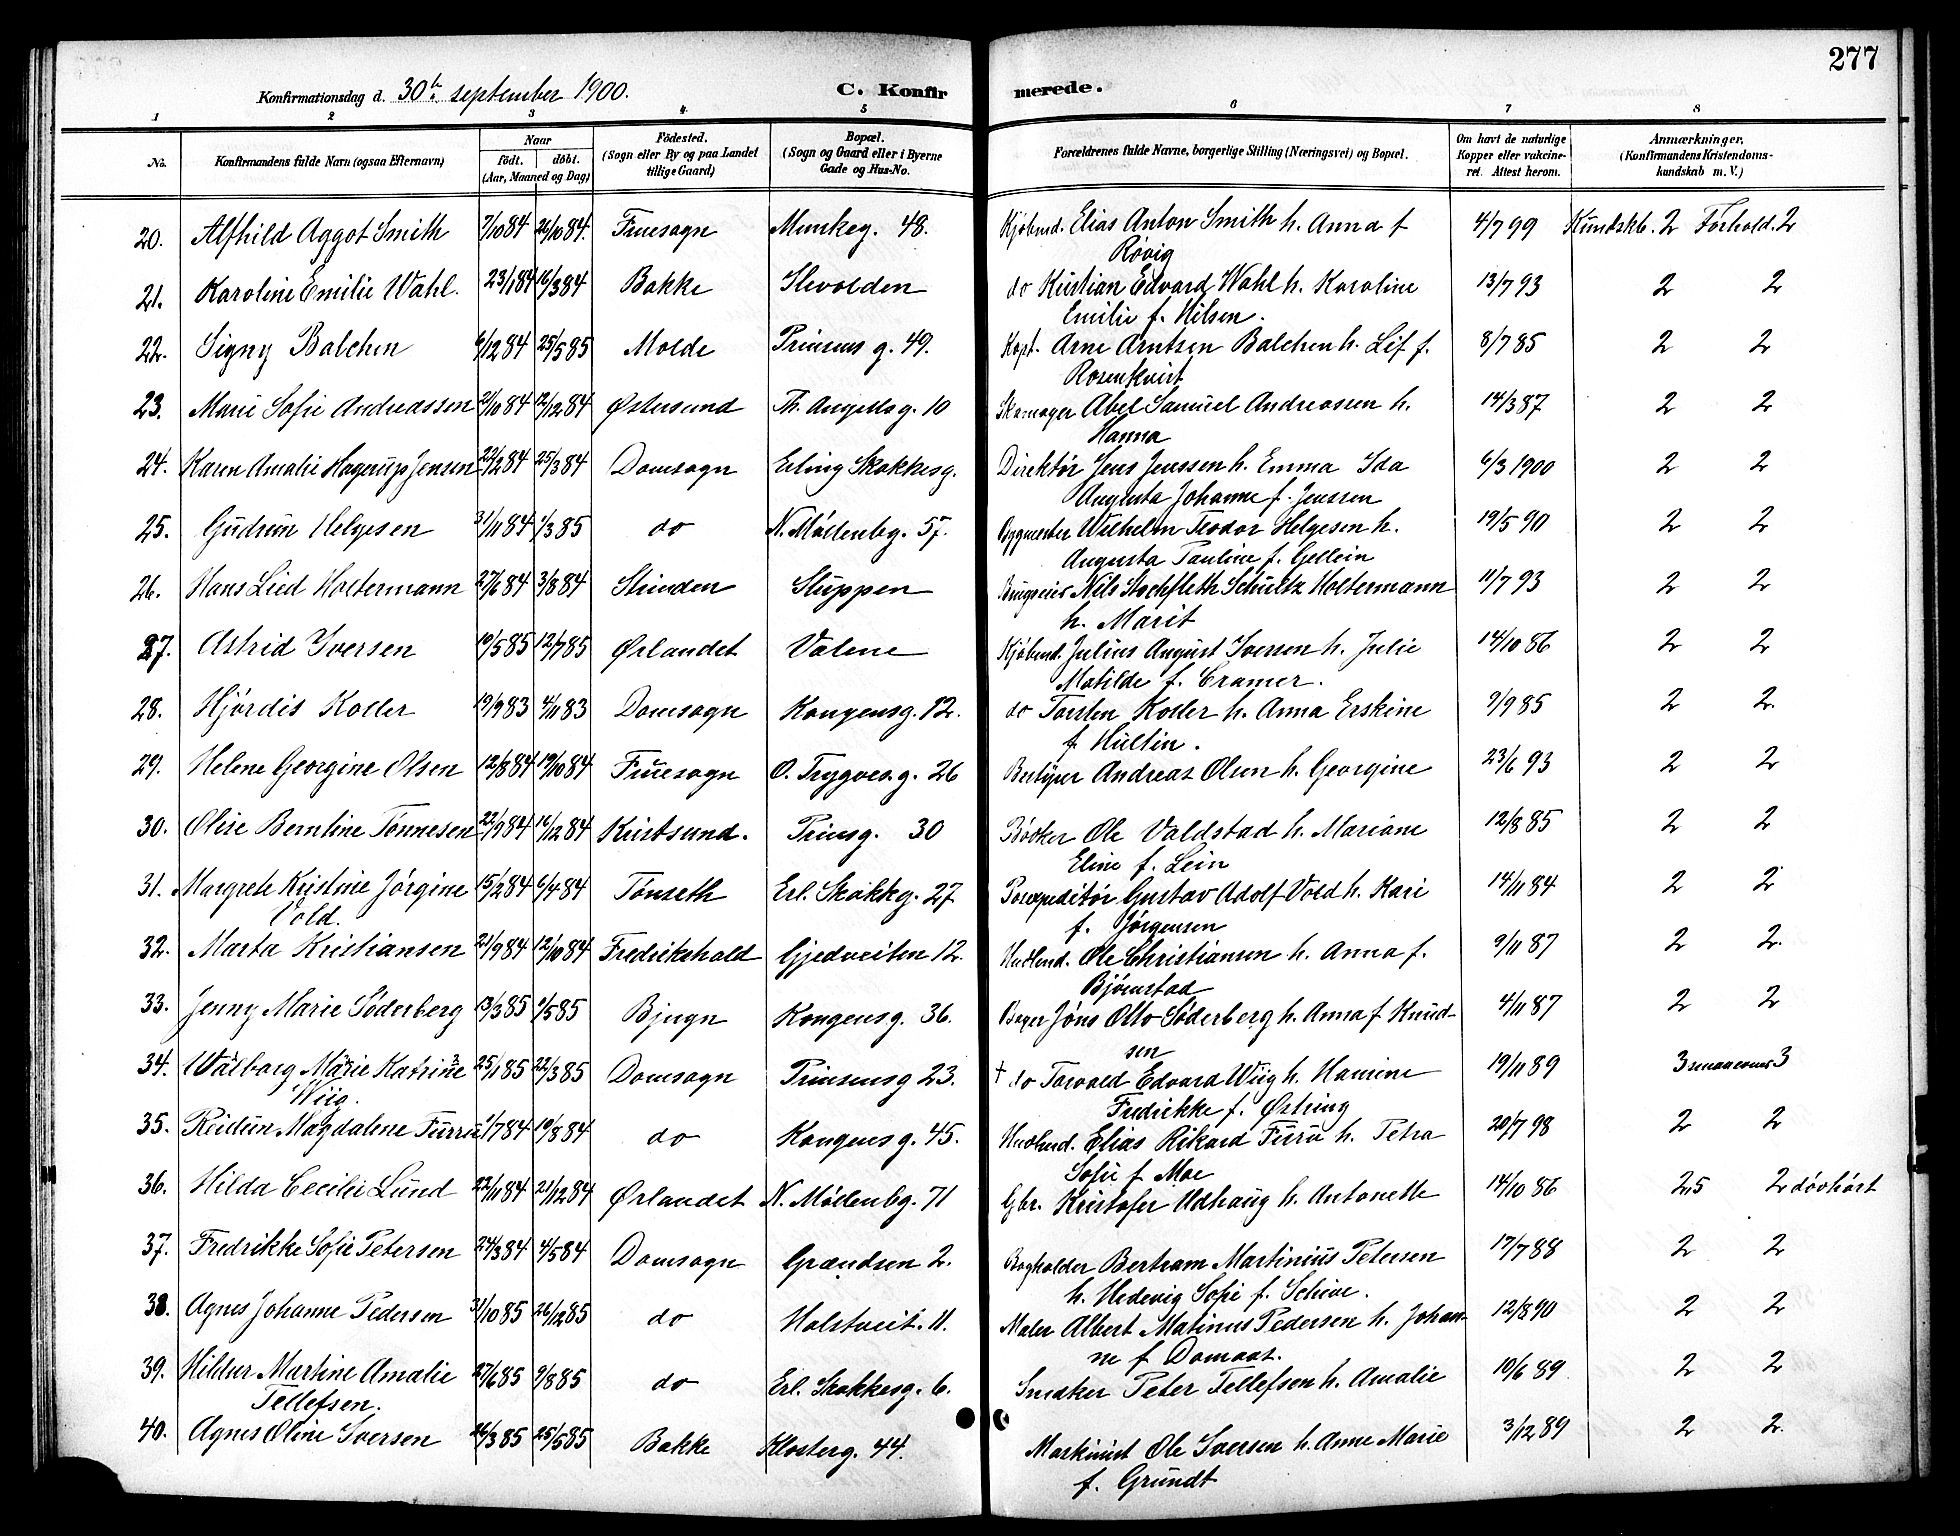 277
Konfirmationsdag d. 30te september 1900. C. Konfirmerede.
1 2 3 4 5 6 7 8
No. Konfirmandens fulde Navn (ogsaa Efternavn) Naar født. døbt. (Aar, Maaned og Dag) Fødested. (Sogn eller By og paa Landet tillige Gaard) Bopæl. (Sogn og Gaard eller i Byerne Gade og Hus-No. Forældrenes fulde Navne, borgerlige Stilling (Næringsvei) og Bopæl. Om havt de naturlige Kopper eller vakcineret. Attest herom. Anmærkninger, (Konfirmandens Kristendomskundskab m. V.)
20. Alfhild Aggot Smith 7/10 84 26/10 84. Fruesogn Munkeg. 48. Kjøbmd. Elias Anton Smith h. Anna f 4/7 99 Kundskb. 2 Forhold. 2
Røvig
21. Karoline Emilie Wahl. 23/1 84 16/3 84 Bakke Ilevolden do Kristian Edvard Wahl h. Karoline 13/7 93 2 2
Emilie f. Nilsen.
22. Signy Balchen 6/12 84 25/5 85 Molde Prinsens g. 49. Kapt. Arne Arntsen Balchen h. Lif f. 8/7 85 2 2
Rosenkvist
23. Marie Sofie Andreassen 2/10 84 12/12 84 Østersund Th. Angellsg. 10 Skomager Abel Samuel Andreassen h. 14/3 87 2 2
Hanna
24. Karen Amalie Hagerup Jensen 22/2 84 25/3 84 Domsogn Erling Skakkesg. Direktør Jens Jenssen h. Emma Ida 6/3 1900 2 2
Augusta Johanne f. Jenssen
25. Gudrun Helgesen 3/11 84 1/3 85 do N. Møllenbg. 57. Bygmester Wilhelm Teodor Helgesen h. 19/5 90 2 2
Augusta Pauline f. Gellein
26. Hans Lied Holtermann 27/6 84 3/8 84 Strinden Sluppen Brugseier Nils Stockfleth Schultz Holtermann 11/7 93 2 2
h. Marit
27. Astrid Iversen 19/5 85 12/7 85 Ørlandet Valene Kjøbmd. Julius August Iversen h. Julie 14/10 86 2 2
Matilde f. Cramer.
28. Hjørdis Koller 19/9 83 4/11 83 Domsogn Kongensg. 12. do Torsten Koller h. Anna Erskine 9/9 85 2 2.
f. Hultin.
29. Helene Georgine Olsen 12/8 84 19/10 84 Fruesogn O. Trygves.g. 26 Andreas Olsen h. Georgine 23/6 93 2 2
30. Olise Berntine Tønnesen 22/9 84 14/12 84 Kristsund. Prinsg. 30 Bødker Ole Valdstad h. Mariane 12/8 85 2 2
Eline f. Lein
31. Margrete Kristine Jørgine 15/2 84 6/4 84 Tønseth Erl. Skakkg. 27 Posexpeditør Gustav Adolf Vold h. Kari 14/11 84 2 2
Vold. f. Jørgensen
32. Marta Kristiansen 21/9 84 12/10 84 Fredrikshald Gjedveiten 12. Ole Christiansen h. Anna f. 9/11 87 2 2.
Bjørnstad
33. Jenny Marie Søderberg 13/3 85 9/5 85 Bjugn Kongensg. 36. Bager Jøns Otto Søderberg h. Anna f Knud- 4/11 87 2 2
sen
34. Walborg Marie Katrine 25/1 85 22/3 85 Domsogn Prinsensg 23. † do Torvald Edvard Wiig h. Hanine 19/11 89 3 smaaevner 3
Wiig. Fredrikke f. Østring
35. Reidun Magdalene Furru 1/7 84 10/8 84 do Kongens g. 45. Elias Rikard Furu h. Petra 20/7 98 2 2
Sofie f Moe
36. Hilda Cecilie Lund 22/11 84 21/12 84 Ørlandet N. Møllenbg. 71 Gbr. Kristofer Udhaug h. Antonette 14/10 86 2,5 2 døvhørt
37. Fredrikke Sofie Petersen 24/3 84 4/5 84 Domsogn Grændsen 2. Bogholder Bertram Martinius Petersen 17/7 88 2 2
h. Hedevig Sofie f. Schive.
38. Agnes Johanne Pedersen 31/10 85 26/12 85 do Holstveit. 11. Maler Albert Matinus Pedersen h. Johan- 12/8 90 2 2
ne f Domaas.
39. Hildur Martine Amalie 27/6 85 9/8 85 do Erl. Skakkesg. 6. Snedker Peter Tellefsen h. Amalie 10/6 89 2 2
Tellefsen.
40. Agnes Oline Iversen 26/3 85 25/5 85 Bakke Klosterg. 44. Maskinist Ole Iversen h. Anne Marie 3/12 89 2 2.
f. Grundt